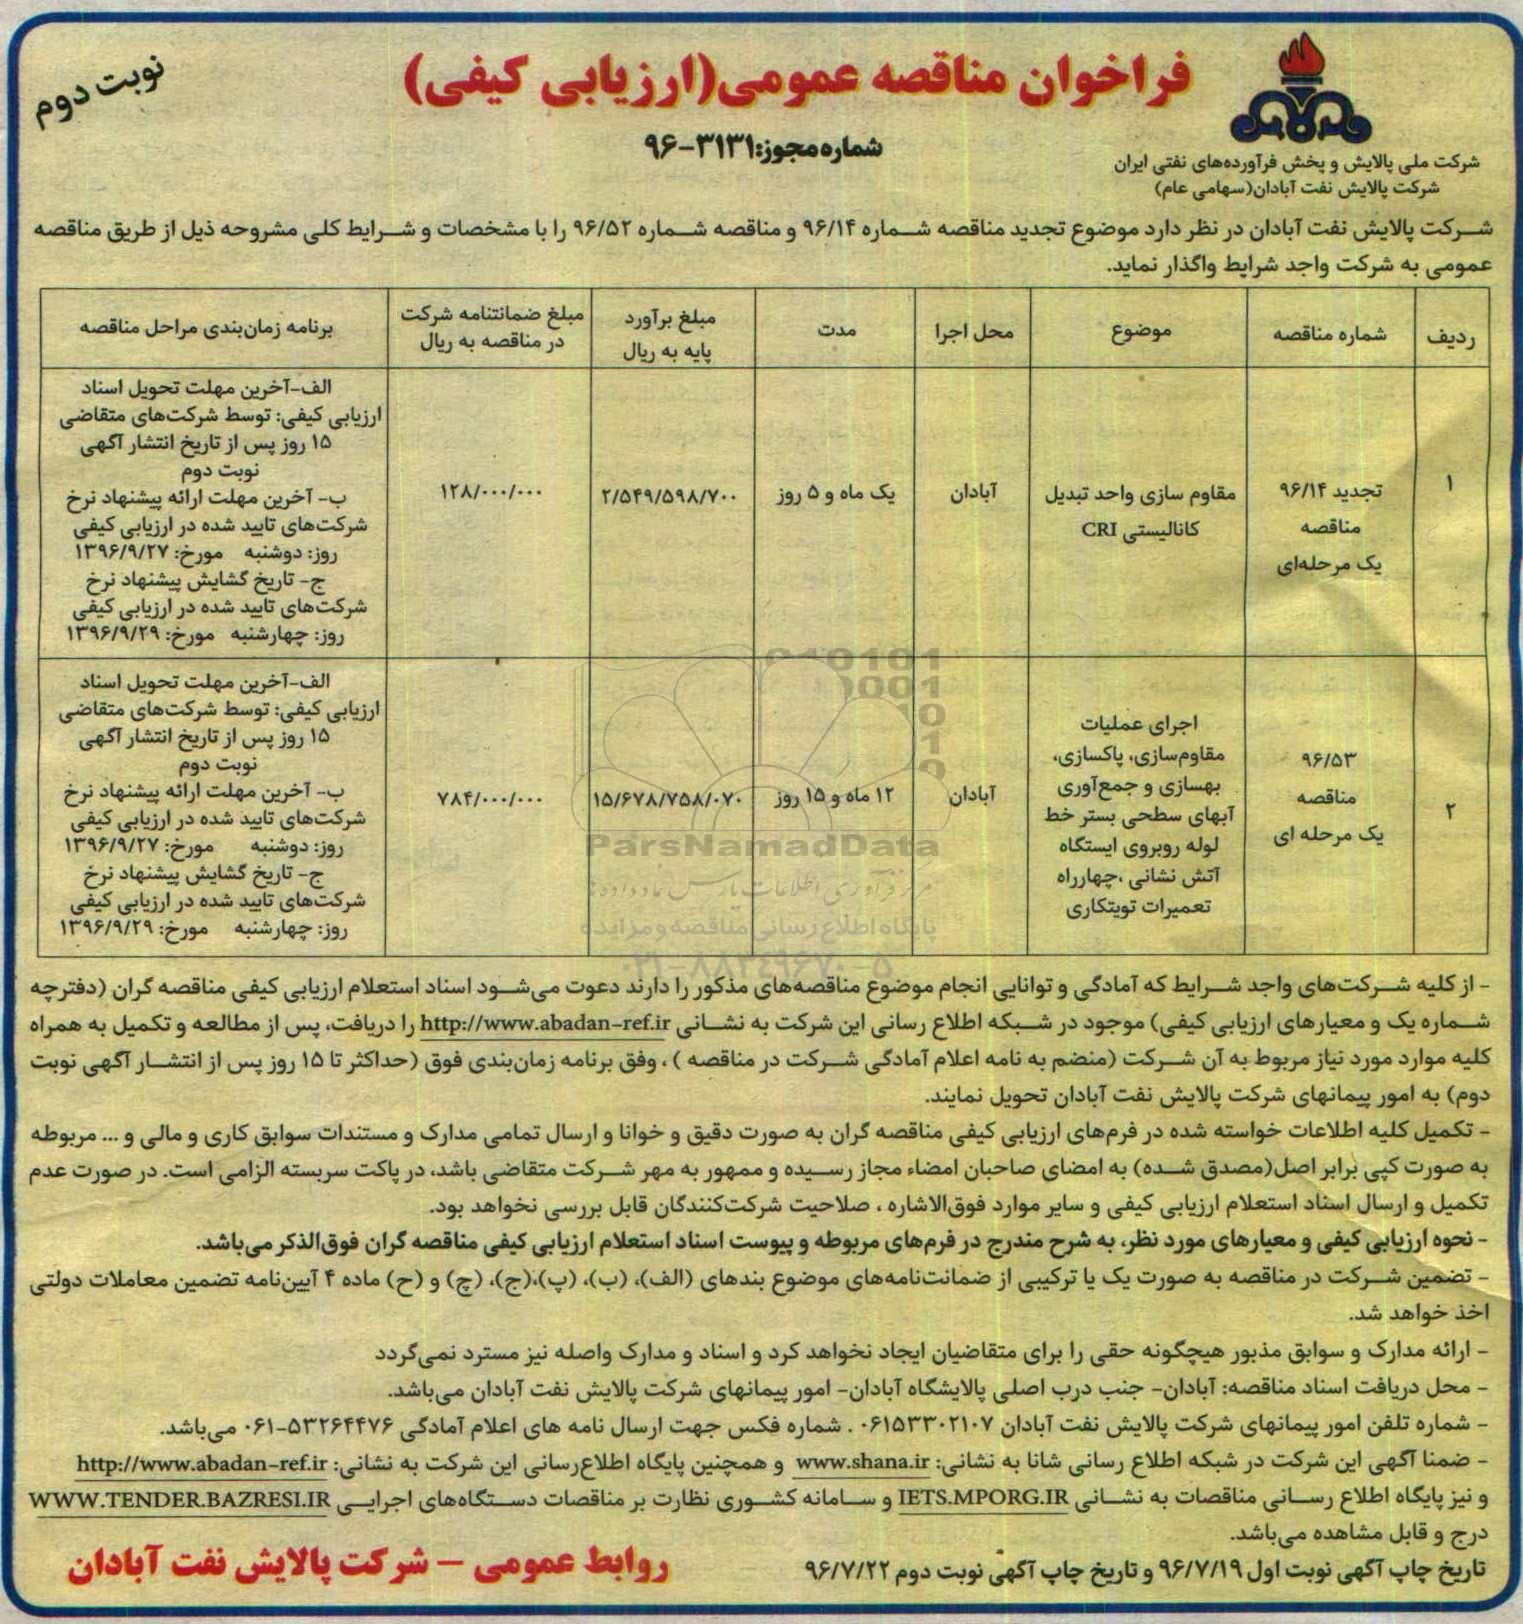 نوبت دوم
فراخوان مناقصه عمومی(ارزیابی کیفی)
شماره مجوز:۳۱۳۱-۹۶
شرکت ملی پالایش و پخش فرآورده‌های نفتی ایران
شرکت پالایش نفت آبادان(سهامی عام)
شرکت پالایش نفت آبادان در نظر دارد موضوع تجدید مناقصه شماره ۹۶/۱۴ و مناقصه شماره ۹۶/۵۲ را با مشخصات و شرایط کلی مشروحه ذیل از طریق مناقصه
عمومی به شرکت واجد شرایط واگذار نماید.
ردیف
شماره مناقصه
موضوع
محل اجرا
مدت
مبلغ برآورد
پایه به ریال
مبلغ ضمانتنامه شرکت
در مناقصه به ریال
برنامه زمان‌بندی مراحل مناقصه
۱
تجدید ۹۶/۱۴
مناقصه
یک مرحله‌ای
مقاوم سازی واحد تبدیل
کاتالیستی CRI
آبادان
یک ماه و ۵ روز
۲/۵۴۹/۵۹۸/۷۰۰
۱۲۸/۰۰۰/۰۰۰
الف-آخرین مهلت تحویل اسناد
ارزیابی کیفی: توسط شرکت‌های متقاضی
۱۵ روز پس از تاریخ انتشار آگهی
نوبت دوم
ب- آخرین مهلت ارائه پیشنهاد نرخ
شرکت‌های تایید شده در ارزیابی کیفی
روز: دوشنبه مورخ: ۱۳۹۶/۹/۲۷
ج- تاریخ گشایش پیشنهاد نرخ
شرکت‌های تایید شده در ارزیابی کیفی
روز: چهارشنبه مورخ: ۱۳۹۶/۹/۲۹
۲
۹۶/۵۳
مناقصه
یک مرحله ای
اجرای عملیات
مقاوم‌سازی، پاکسازی،
بهسازی و جمع‌آوری
آبهای سطحی بستر خط
لوله روبروی ایستگاه
آتش نشانی ،چهارراه
تعمیرات تویتکاری
آبادان
۱۲ ماه و ۱۵ روز
۱۵/۶۷۸/۷۵۸/۰۷۰
۷۸۴/۰۰۰/۰۰۰
الف-آخرین مهلت تحویل اسناد
ارزیابی کیفی: توسط شرکت‌های متقاضی
۱۵ روز پس از تاریخ انتشار آگهی
نوبت دوم
ب- آخرین مهلت ارائه پیشنهاد نرخ
شرکت‌های تایید شده در ارزیابی کیفی
روز: دوشنبه مورخ: ۱۳۹۶/۹/۲۷
ج- تاریخ گشایش پیشنهاد نرخ
شرکت‌های تایید شده در ارزیابی کیفی
روز: چهارشنبه مورخ: ۱۳۹۶/۹/۲۹
ParsNamadData
مرکز فرآوری اطلاعات پارس نماد داده‌ها
پایگاه اطلاع رسانی مناقصه و مزایده
۰۲۱-۸۸۳۴۹۶۷۰-۵
- از کلیه شرکت‌های واجد شرایط که آمادگی و توانایی انجام موضوع مناقصه‌های مذکور را دارند دعوت می‌شود اسناد استعلام ارزیابی کیفی مناقصه گران (دفترچه
شماره یک و معیارهای ارزیابی کیفی) موجود در شبکه اطلاع رسانی این شرکت به نشانی http://www.abadan-ref.ir را دریافت، پس از مطالعه و تکمیل به همراه
کلیه موارد مورد نیاز مربوط به آن شرکت (منضم به نامه اعلام آمادگی شرکت در مناقصه ) ، وفق برنامه زمان‌بندی فوق (حداکثر تا ۱۵ روز پس از انتشار آگهی نوبت
دوم) به امور پیمانهای شرکت پالایش نفت آبادان تحویل نمایند.
- تکمیل کلیه اطلاعات خواسته شده در فرم‌های ارزیابی کیفی مناقصه گران به صورت دقیق و خوانا و ارسال تمامی مدارک و مستندات سوابق کاری و مالی و ... مربوطه
به صورت کپی برابر اصل(مصدق شده) به امضای صاحبان امضاء مجاز رسیده و ممهور به مهر شرکت متقاضی باشد، در پاکت سربسته الزامی است. در صورت عدم
تکمیل و ارسال اسناد استعلام ارزیابی کیفی و سایر موارد فوق‌الاشاره ، صلاحیت شرکت‌کنندگان قابل بررسی نخواهد بود.
- نحوه ارزیابی کیفی و معیارهای مورد نظر، به شرح مندرج در فرم‌های مربوطه و پیوست اسناد استعلام ارزیابی کیفی مناقصه گران فوق‌الذکر می‌باشد.
- تضمین شرکت در مناقصه به صورت یک یا ترکیبی از ضمانت‌نامه‌های موضوع بندهای (الف)، (ب)، (پ)،(ج)، (چ) و (ح) ماده ۴ آیین‌نامه تضمین معاملات دولتی
اخذ خواهد شد.
- ارائه مدارک و سوابق مذبور هیچگونه حقی را برای متقاضیان ایجاد نخواهد کرد و اسناد و مدارک واصله نیز مسترد نمی‌گردد
- محل دریافت اسناد مناقصه: آبادان- جنب درب اصلی پالایشگاه آبادان- امور پیمانهای شرکت پالایش نفت آبادان می‌باشد.
- شماره تلفن امور پیمانهای شرکت پالایش نفت آبادان ۰۶۱۵۳۳۰۲۱۰۷ . شماره فکس جهت ارسال نامه های اعلام آمادگی ۵۳۲۶۴۴۷۶-۰۶۱ می‌باشد.
- ضمنا آگهی این شرکت در شبکه اطلاع رسانی شانا به نشانی: www.shana.ir و همچنین پایگاه اطلاع‌رسانی این شرکت به نشانی: http://www.abadan-ref.ir
و نیز پایگاه اطلاع رسانی مناقصات به نشانی IETS.MPORG.IR و سامانه کشوری نظارت بر مناقصات دستگاه‌های اجرایی WWW.TENDER.BAZRESI.IR
درج و قابل مشاهده می‌باشد.
تاریخ چاپ آگهی نوبت اول ۹۶/۷/۱۹ و تاریخ چاپ آگهی نوبت دوم ۹۶/۷/۲۲
روابط عمومی – شرکت پالایش نفت آبادان